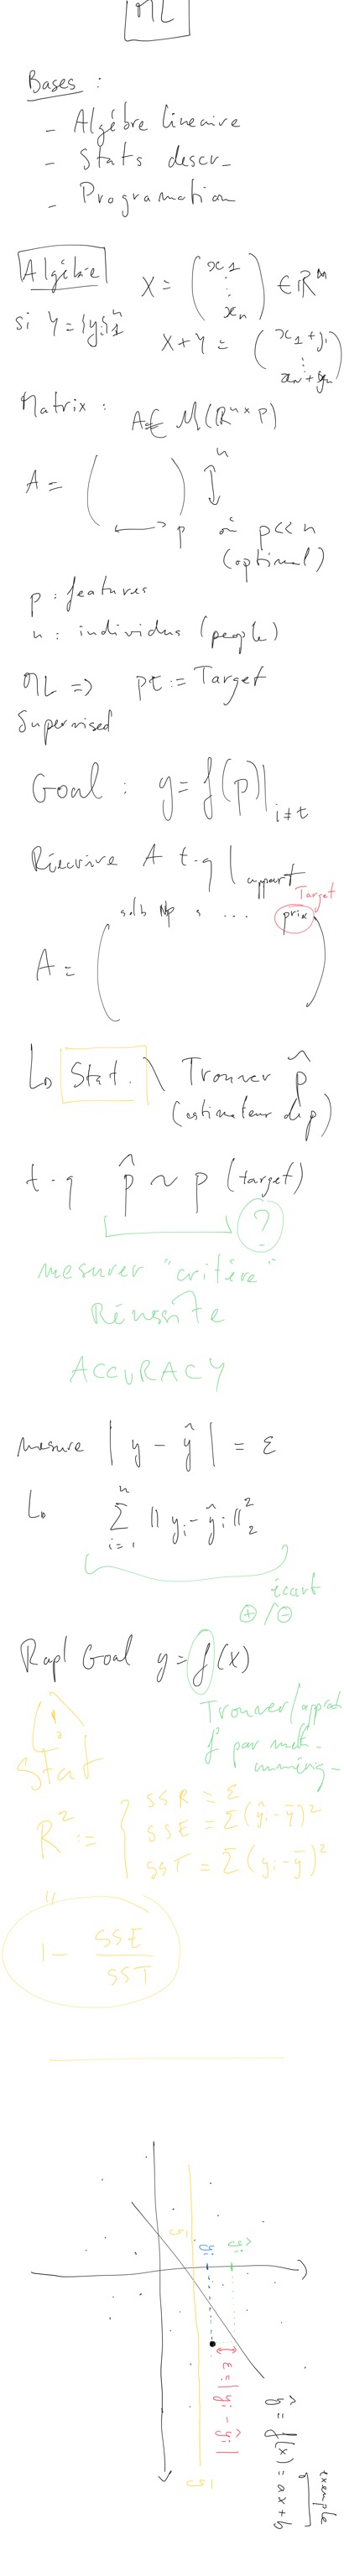 ML
Bases :
- Algèbre lineaire
- Stats descr-
- Programation
Algèbre
X = ( x1 ⋮ xn ) ∈ ℝ^n
si Y = {yi}1^n
X + Y = ( x1 + y1 ⋮ xn + yn )
Matrix : A ∈ M(ℝ^n×p)
A = ( ) ↕ n
↔ p où p << n
(optimal)
p : features
n : individus (people)
ML => pt := Target
Supervised
Goal : y = f(p)|i≠t
Réecrire A t.q | appart
Target
sdb Np s ... prix
A = ( )
↳ Stat. \ Trouver p̂
(estimateur de p)
t.q p̂ ~ p (target)
?
mesurer "critère"
Réussite
ACCURACY
mesure | y - ŷ | = ε
↳ Σ i=1 n || yi - ŷi ||2^2
écart
⊕/⊖
Rapl Goal y = f(x)
Trouver/approch
f par méth-
numériq-
!
Stat
R² := { SSR = ε
SSE = Σ(ŷi - ȳ)²
SST = Σ(yi - ȳ)²
"
1 - SSE/SST
ȳ
yi
ŷi
εi = | yi - ŷi |
ȳ
ŷ = f(x) = ax + b
exemple